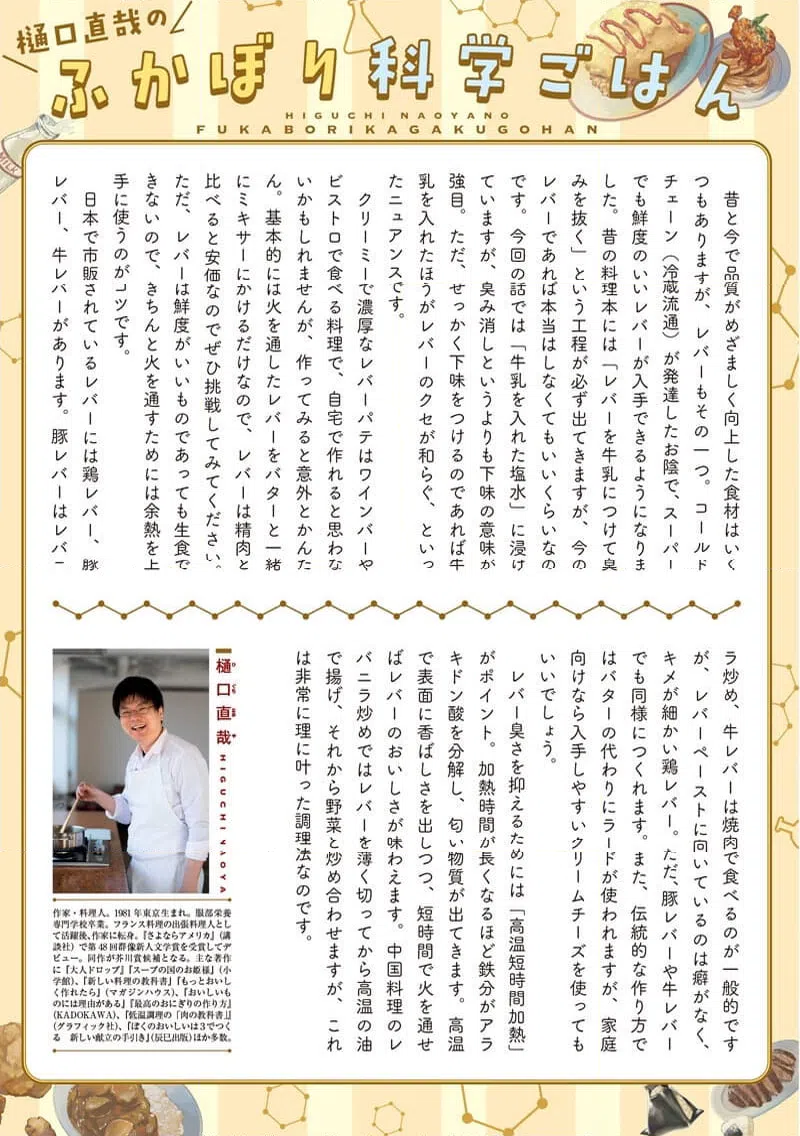 樋口直哉の
ふかぼり科学ごはん
HIGUCHI NAOYANO
FUKABORIKAGAKUGOHAN
昔と今で品質がめざましく向上した食材はいく
つもありますが、レバーもその一つ。コールド
チェーン（冷蔵流通）が発達したお陰で、スーパー
でも鮮度のいいレバーが入手できるようになりま
した。昔の料理本には「レバーを牛乳につけて臭
みを抜く」という工程が必ず出てきますが、今の
レバーであれば本当はしなくてもいいくらいなの
です。今回の話では「牛乳を入れた塩水」に浸け
ていますが、臭み消しというよりも下味の意味が
強目。ただ、せっかく下味をつけるのであれば牛
乳を入れたほうがレバーのクセが和らぐ、といっ
たニュアンスです。
クリーミーで濃厚なレバーパテはワインバーや
ビストロで食べる料理で、自宅で作れると思わな
いかもしれませんが、作ってみると意外とかんた
ん。基本的には火を通したレバーをバターと一緒
にミキサーにかけるだけなので、レバーは精肉と
比べると安価なのでぜひ挑戦してみてください。
ただ、レバーは鮮度がいいものであっても生食で
きないので、きちんと火を通すためには余熱を上
手に使うのがコツです。
日本で市販されているレバーには鶏レバー、豚
レバー、牛レバーがあります。豚レバーはレバニ
ラ炒め、牛レバーは焼肉で食べるのが一般的です
が、レバーペーストに向いているのは癖がなく、
キメが細かい鶏レバー。ただ、豚レバーや牛レバー
でも同様につくれます。また、伝統的な作り方で
はバターの代わりにラードが使われますが、家庭
向けなら入手しやすいクリームチーズを使っても
いいでしょう。
レバー臭さを抑えるためには「高温短時間加熱」
がポイント。加熱時間が長くなるほど鉄分がアラ
キドン酸を分解し、匂い物質が出てきます。高温
で表面に香ばしさを出しつつ、短時間で火を通せ
ばレバーのおいしさが味わえます。中国料理のレ
バニラ炒めではレバーを薄く切ってから高温の油
で揚げ、それから野菜と炒め合わせますが、これ
は非常に理に叶った調理法なのです。
樋口直哉
ひぐちなおや
HIGUCHI NAOYA
作家・料理人。1981年東京生まれ。服部栄養
専門学校卒業。フランス料理の出張料理人とし
て活躍後、作家に転身。『さよならアメリカ』（講
談社）で第48回群像新人文学賞を受賞してデ
ビュー。同作が芥川賞候補となる。主な著作
に『大人ドロップ』『スープの国のお姫様』（小
学館）、『新しい料理の教科書』『もっとおいし
く作れたら』（マガジンハウス）、『おいしいも
のには理由がある』『最高のおにぎりの作り方』
（KADOKAWA）、『低温調理の「肉の教科書」』
（グラフィック社）、『ぼくのおいしいは3でつく
る 新しい献立の手引き』（辰巳出版）ほか多数。
MILK